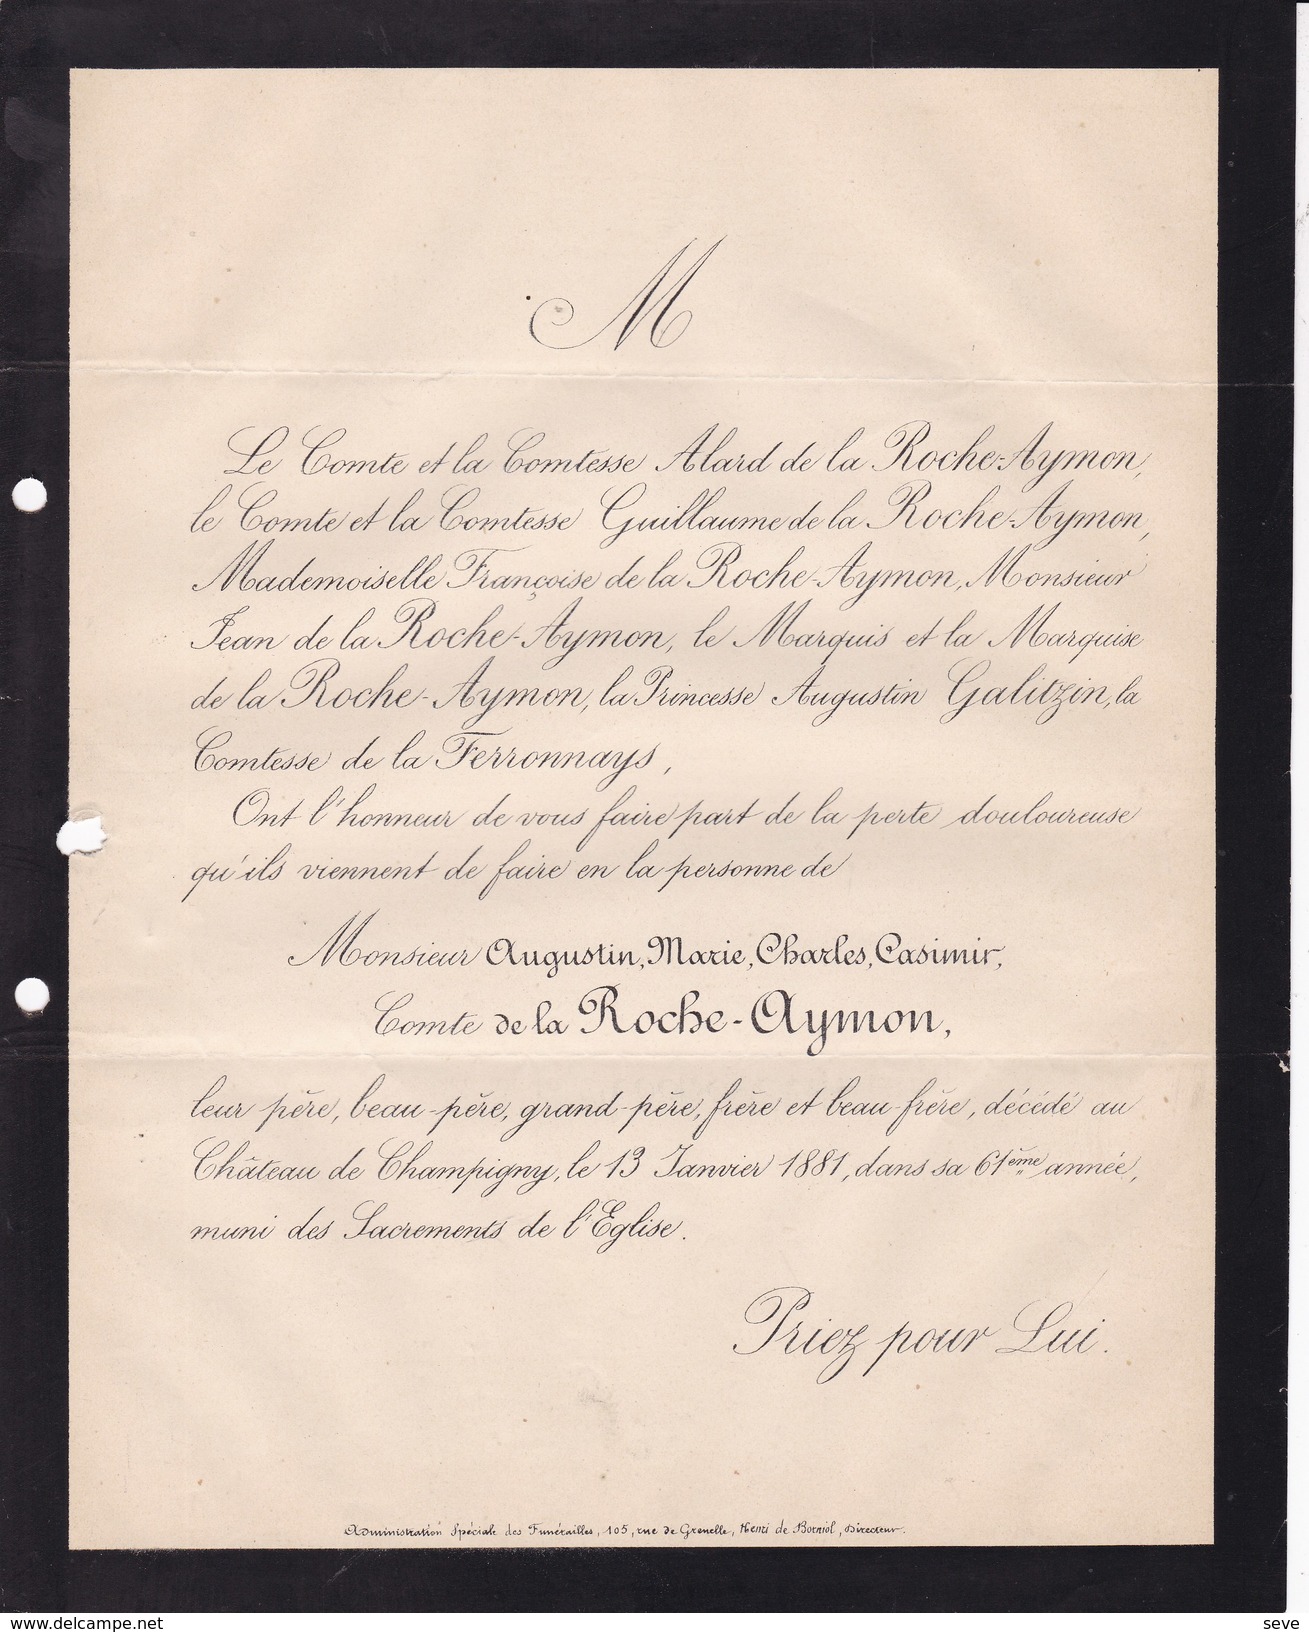 M
Le Comte et la Comtesse Alard de la Roche-Aymon,
le Comte et la Comtesse Guillaume de la Roche-Aymon,
Mademoiselle Françoise de la Roche-Aymon, Monsieur
Jean de la Roche-Aymon, le Marquis et la Marquise
de la Roche-Aymon, la Princesse Augustin Galitzin, la
Comtesse de la Ferronnays,
Ont l'honneur de vous faire part de la perte douloureuse
qu'ils viennent de faire en la personne de
Monsieur Augustin, Marie, Charles, Casimir,
Comte de la Roche-Aymon,
leur père, beau-père, grand-père, frère et beau-frère, décédé au
Château de Champigny, le 13 Janvier 1881, dans sa 61ème année,
muni des Sacrements de l'Eglise.
Priez pour Lui.
Administration Spéciale des Funérailles, 105, rue de Grenelle, Henri de Borniol, Directeur.
www.delcampe.net
seve